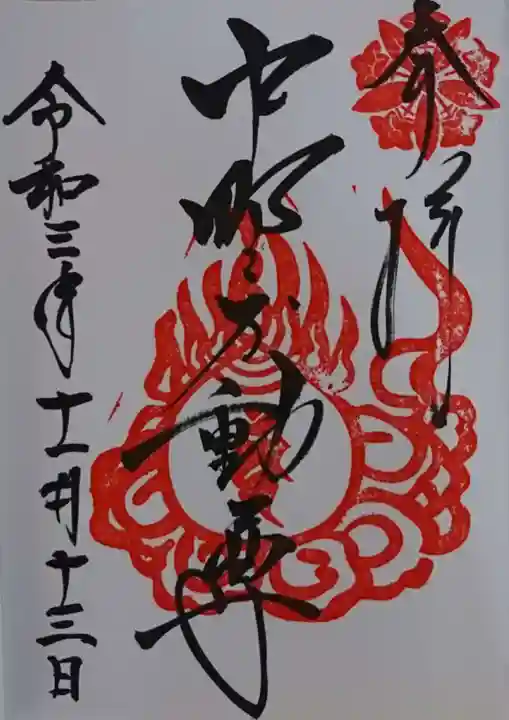 奉拝
中野不動尊
令和三年十一月十三日